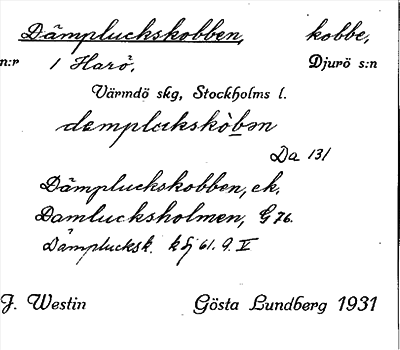 Dämpluckskobben, kobbe,
n:r 1 Harö, Djurö s:n
Värmdö skg, Stockholms l.
dempləkskòbən
Da 131
Dämpluckskobben, ek.
Damlucksholmen, G 76.
Dämplucksk. kfj 61. 9. V
J. Westin Gösta Lundberg 1931